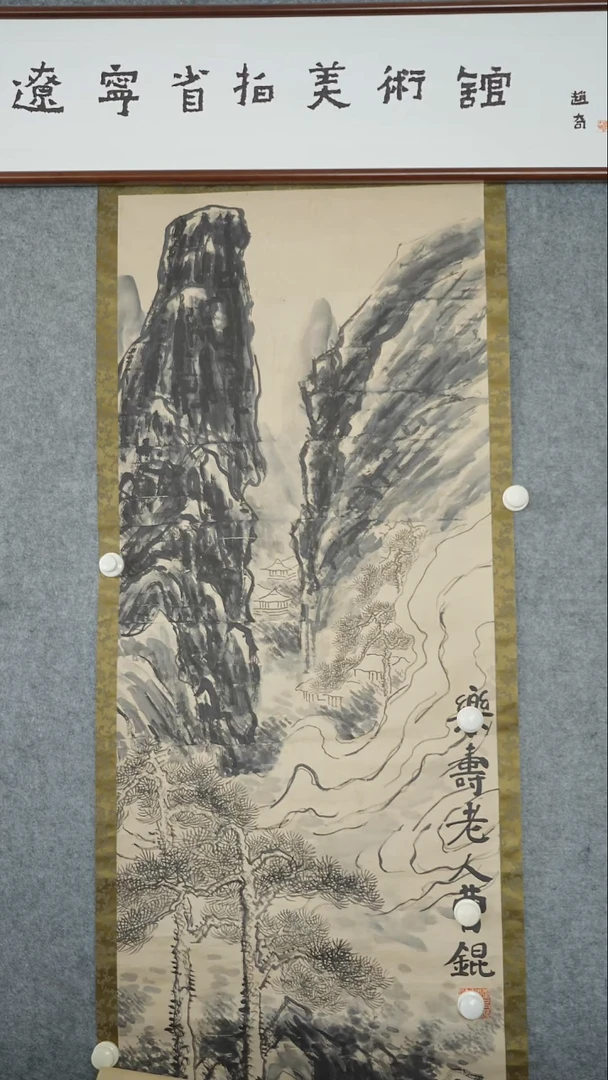 遼寧省拍美術館
趙奇
樂壽老人曹錕